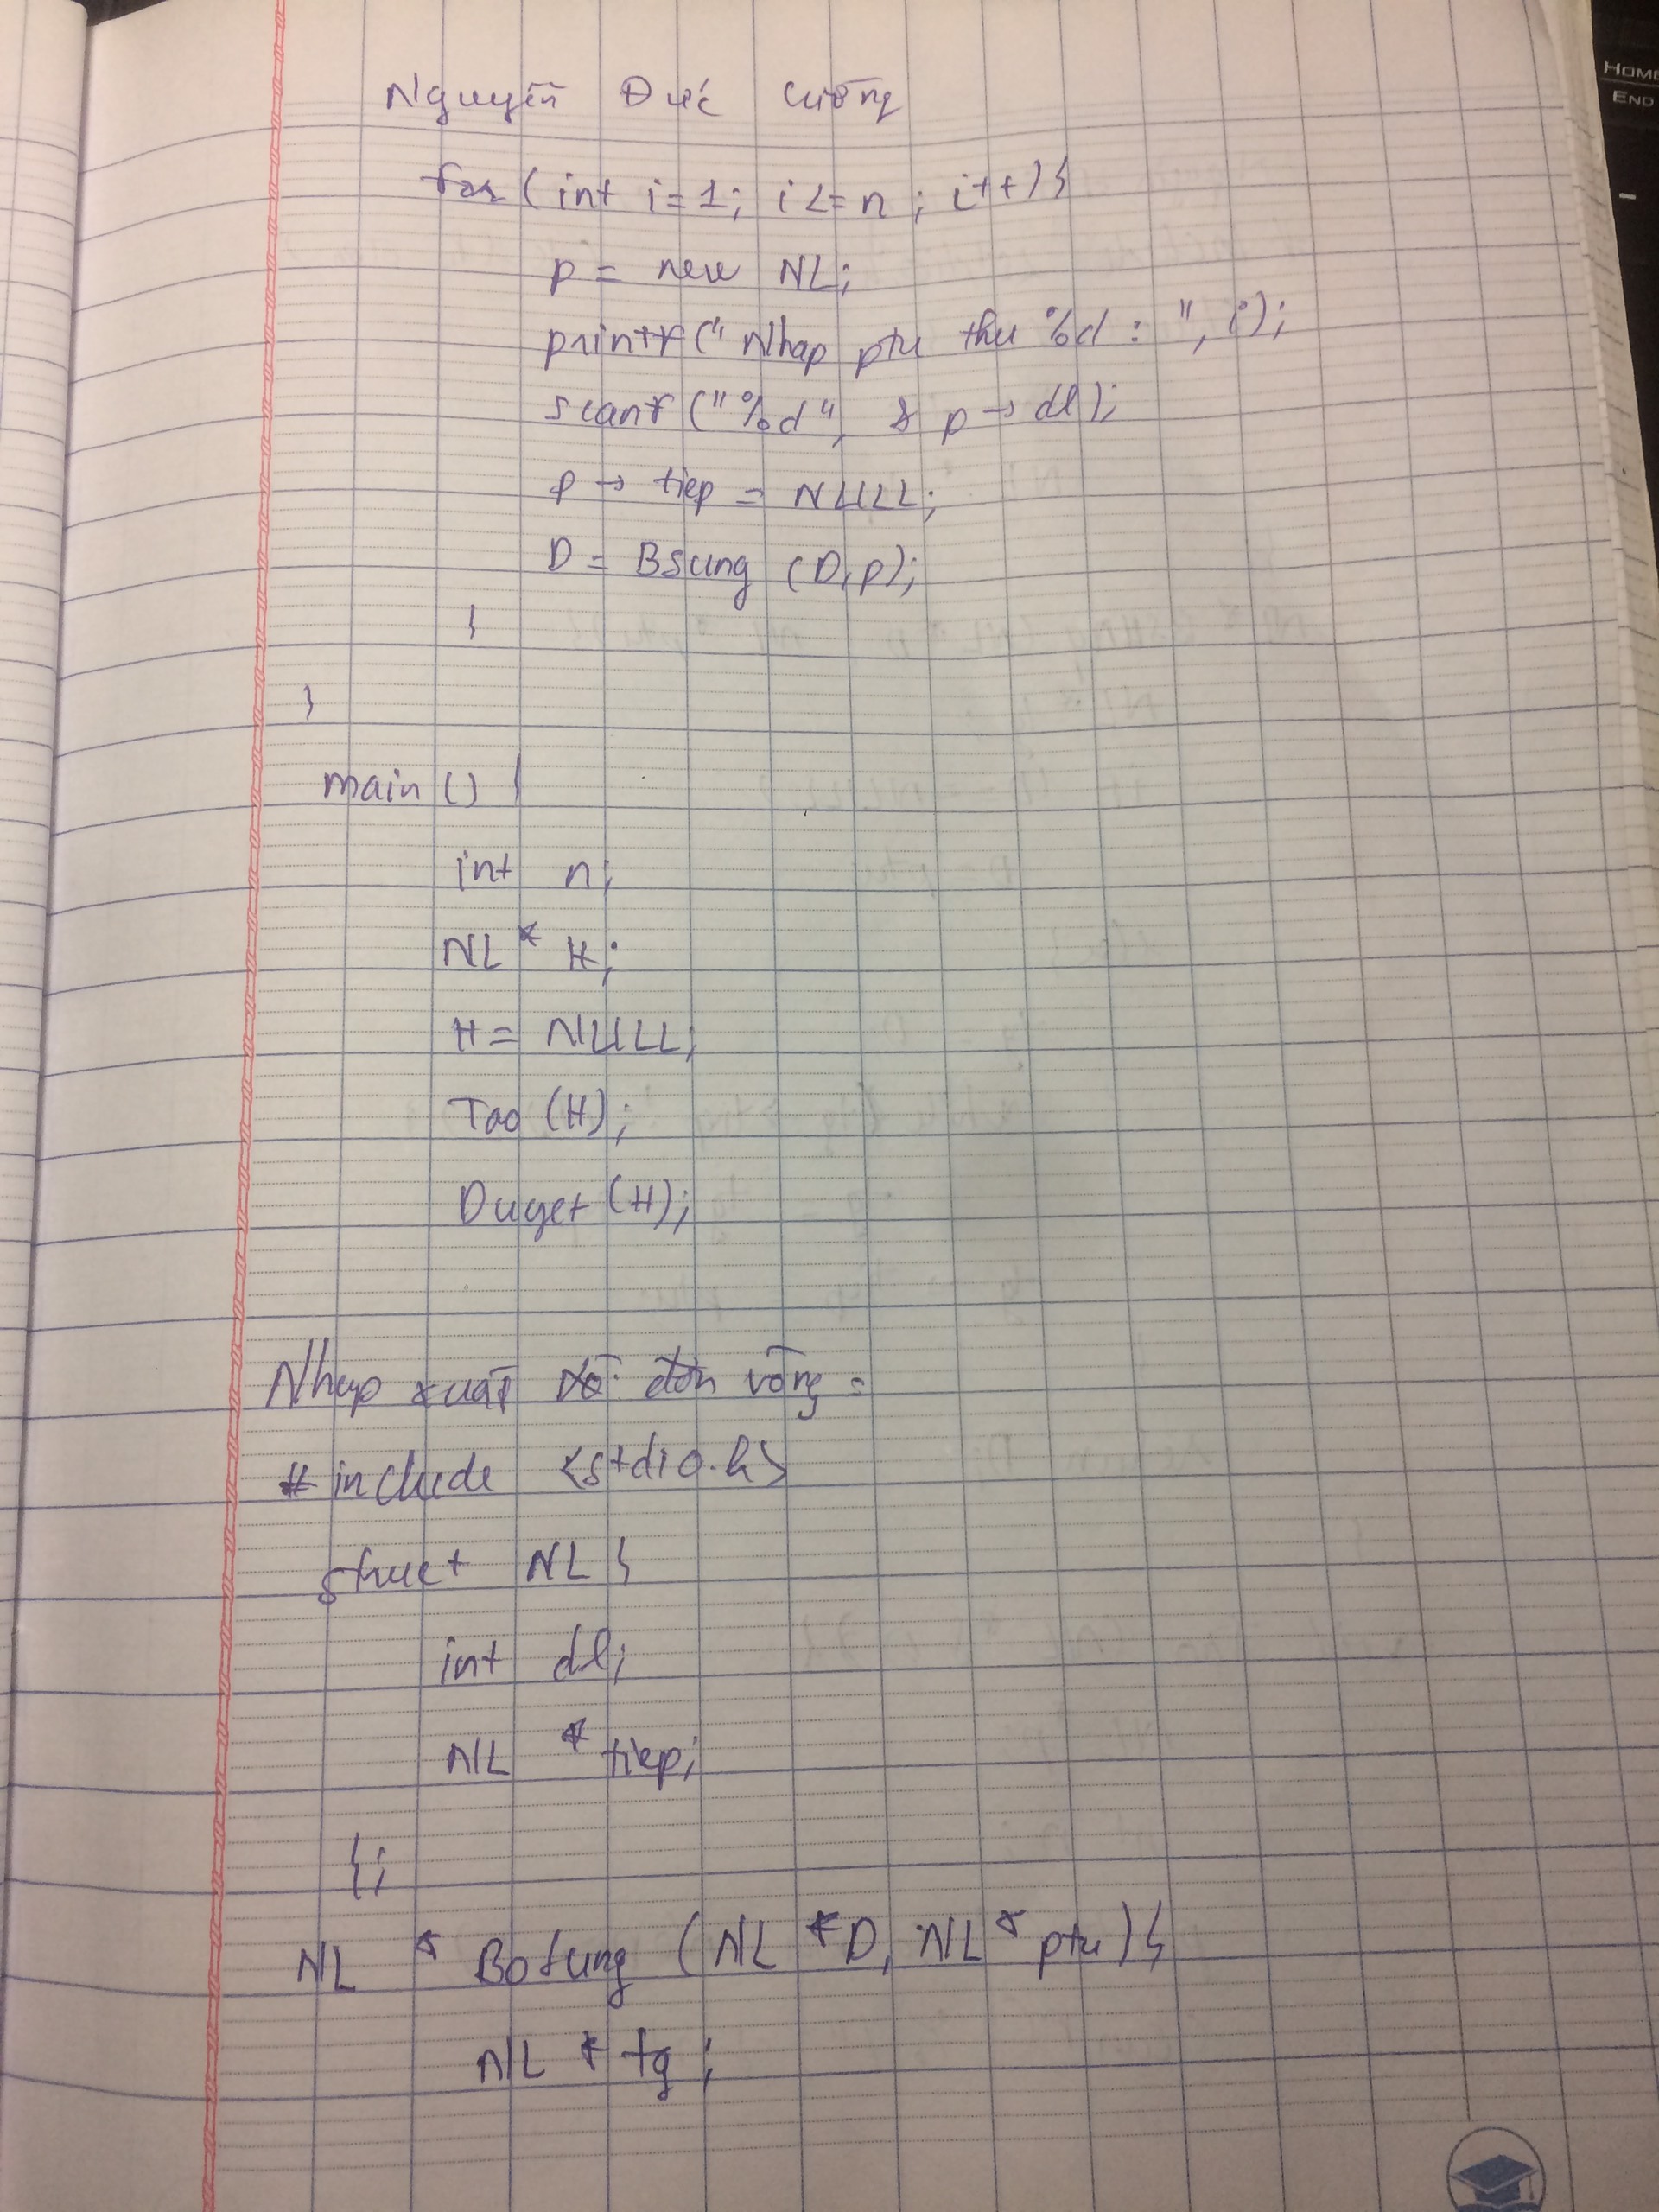 HOME
END
Nguyễn Đức Cường
for (int i=1; i<=n; i++){
p = new NL;
printf("Nhap ptu thu %d : ", i);
scanf("%d", & p→dl);
p → tiep = NULL;
D = BSung (D,p);
}
}
main () {
int n;
NL* H;
H = NULL;
Tao (H);
Duyet (H);
Nhập xuất đơn vòng =
# include <stdio.h>
struct NL {
int dl;
NL *tiep;
};
NL * Bosung (NL *D, NL* ptu){
NL * tg ;